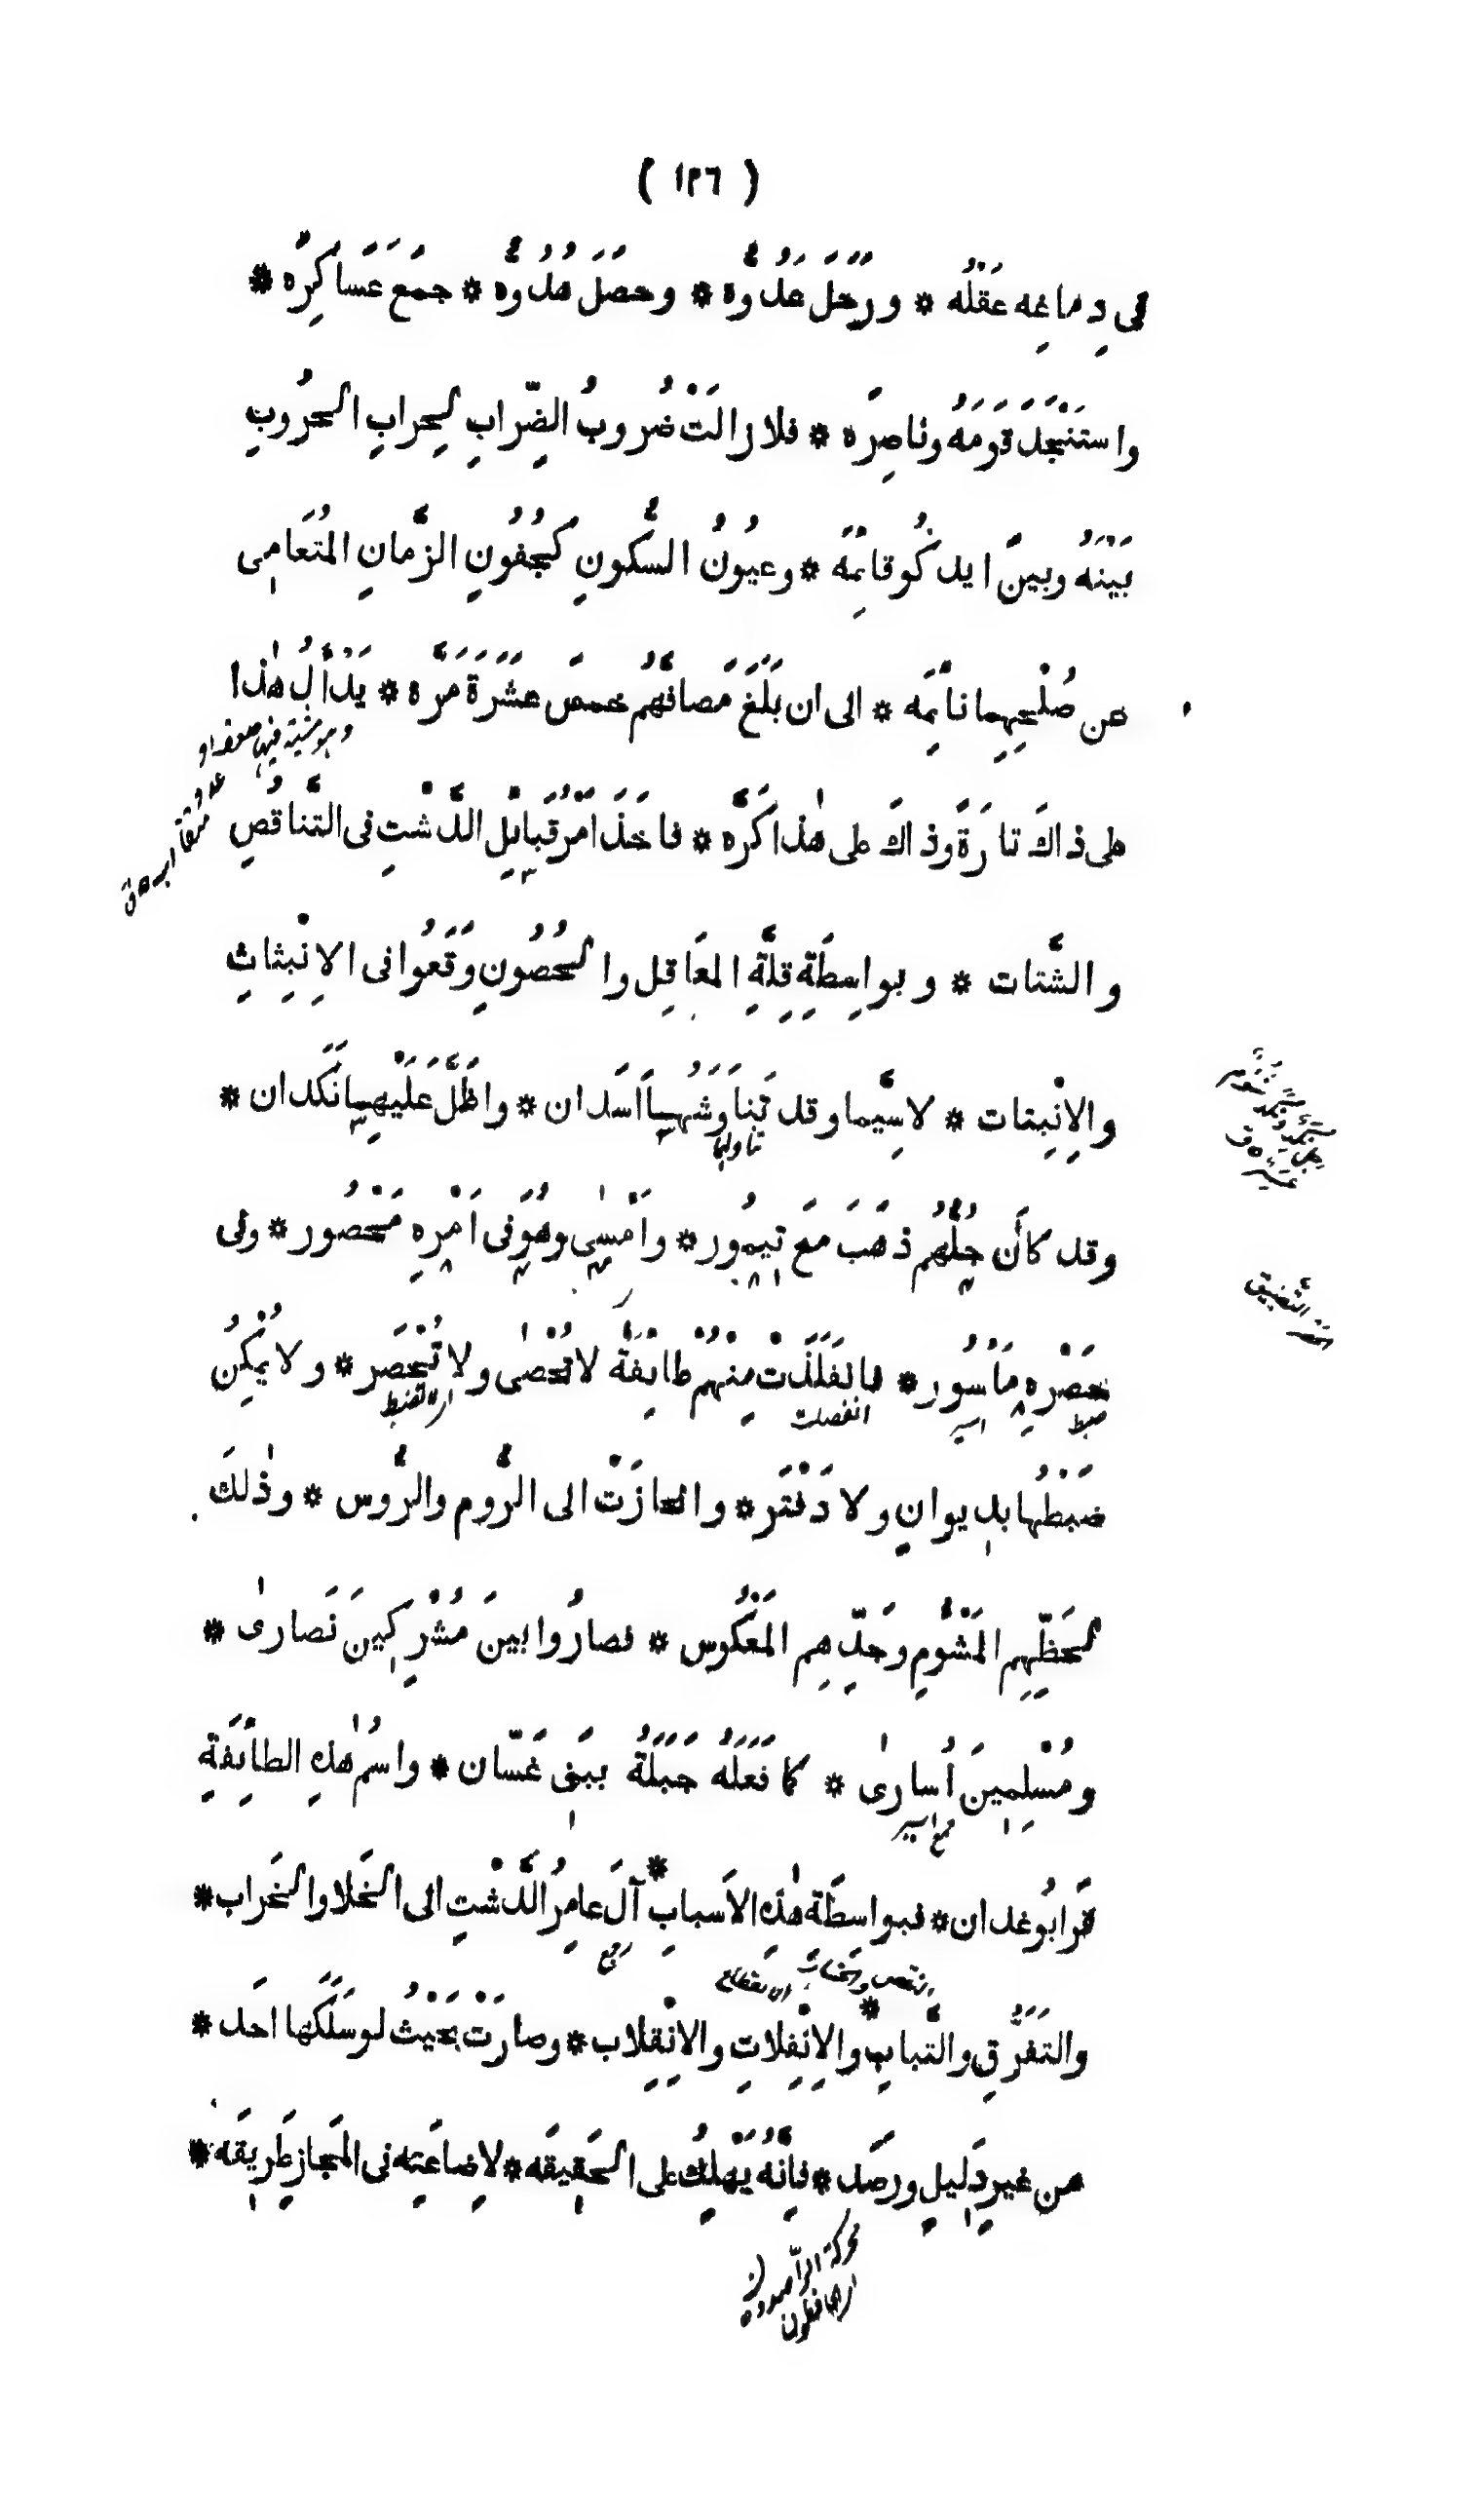 ( ١٢٦ )
فى دِماغِه عَقْلُه * ورَحَّلَ عَدُوَّه * وحصَلَ هُدُوُّه * جمَعَ عَساكِرَه *
واستَنْجَدَ قَومَهُ وناصِرَه * فلا زالَتْ ضُروبُ الضِّرابِ لِحِرابِ الحُرُوبِ
بَيْنَهُ وبينَ ايدكُو قائِمَه * وعيُونُ السُّكونِ كَجُفُونِ الزَّمانِ المُتعَامِى
عن صُلْحِهِما نائِمَه * الى ان بَلَغَ مَصافُّهُم خمسَ عشَرَةَ مَرَّه * يُدْأَلُ هٰذا
على ذاكَ تارَةً وذاكَ على هٰذا كَرَّه * فاخَذَ اَمْرُ قَبايِلِ الدَّشْتِ فى التَّناقُصِ
والشَّتات * وبواسِطَةِ قِلَّةِ المعَاقِل والحُصُونِ وَقَعُوا فى الاِنْبِثاثِ
والاِنْبِتات * لاسِيَّما وقد تَناوَشَهُما اَسَدان * واظَلَّ عَلَيْهِما نَكَدان *
تناولهما
وقد كانَ جُلُّهُم ذهَبَ مَعَ تِيمُور * واَمْسٰى وهُوَ فى اَمْرِه مَحْصُور * وفى
حَصْرِه مَأسُور * فانفَلَذَتْ مِنْهُم طائِفَةٌ لا تُحْصٰى ولا تُحْصَر * ولا يُمْكِنُ
ضبط اسير انفصلت
ضَبْطُها بدِيوانٍ ولا دَفْتَر * وانحازَتْ الى الرُّوم والرُّوس * وذٰلكَ
لحَظِّهِم المَشْؤُمِ وجَدِّهِم المَعْكُوس * فصارُوا بينَ مُشْرِكينَ نَصارىٰ *
ومُسْلِمِينَ اُسارىٰ * كما فَعَلَهُ جَبَلَةُ ببَنِى غَسّان * واسْمُ هٰذِهِ الطائِفَةِ
جمع اسير
قَرابُوغدان * فبواسِطَة هٰذِه الاَسبابِ آلَ عامِرُ الدَّشْتِ الى الخَلا والخَراب *
رجع
والتَفَرُّقِ والتَّبابِ والاِنْفِلاتِ والاِنْقِلاب * وصارَتْ بحَيْثُ لو سَلَكَها احَد *
من غيرِ دَلِيلٍ ورصَدٍ * فاِنَّهُ يَهْلِكُ على الحَقِيقَه * لاِضاعَتِه فى المَجازِ طَرِيقَه *